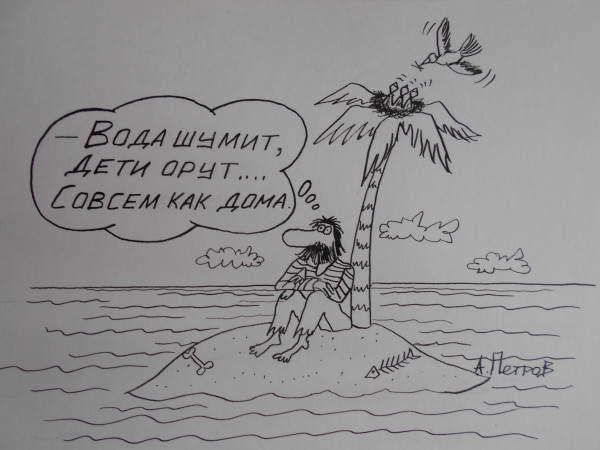 — Вода шумит,
дети орут....
Совсем как дома.
А. Петров